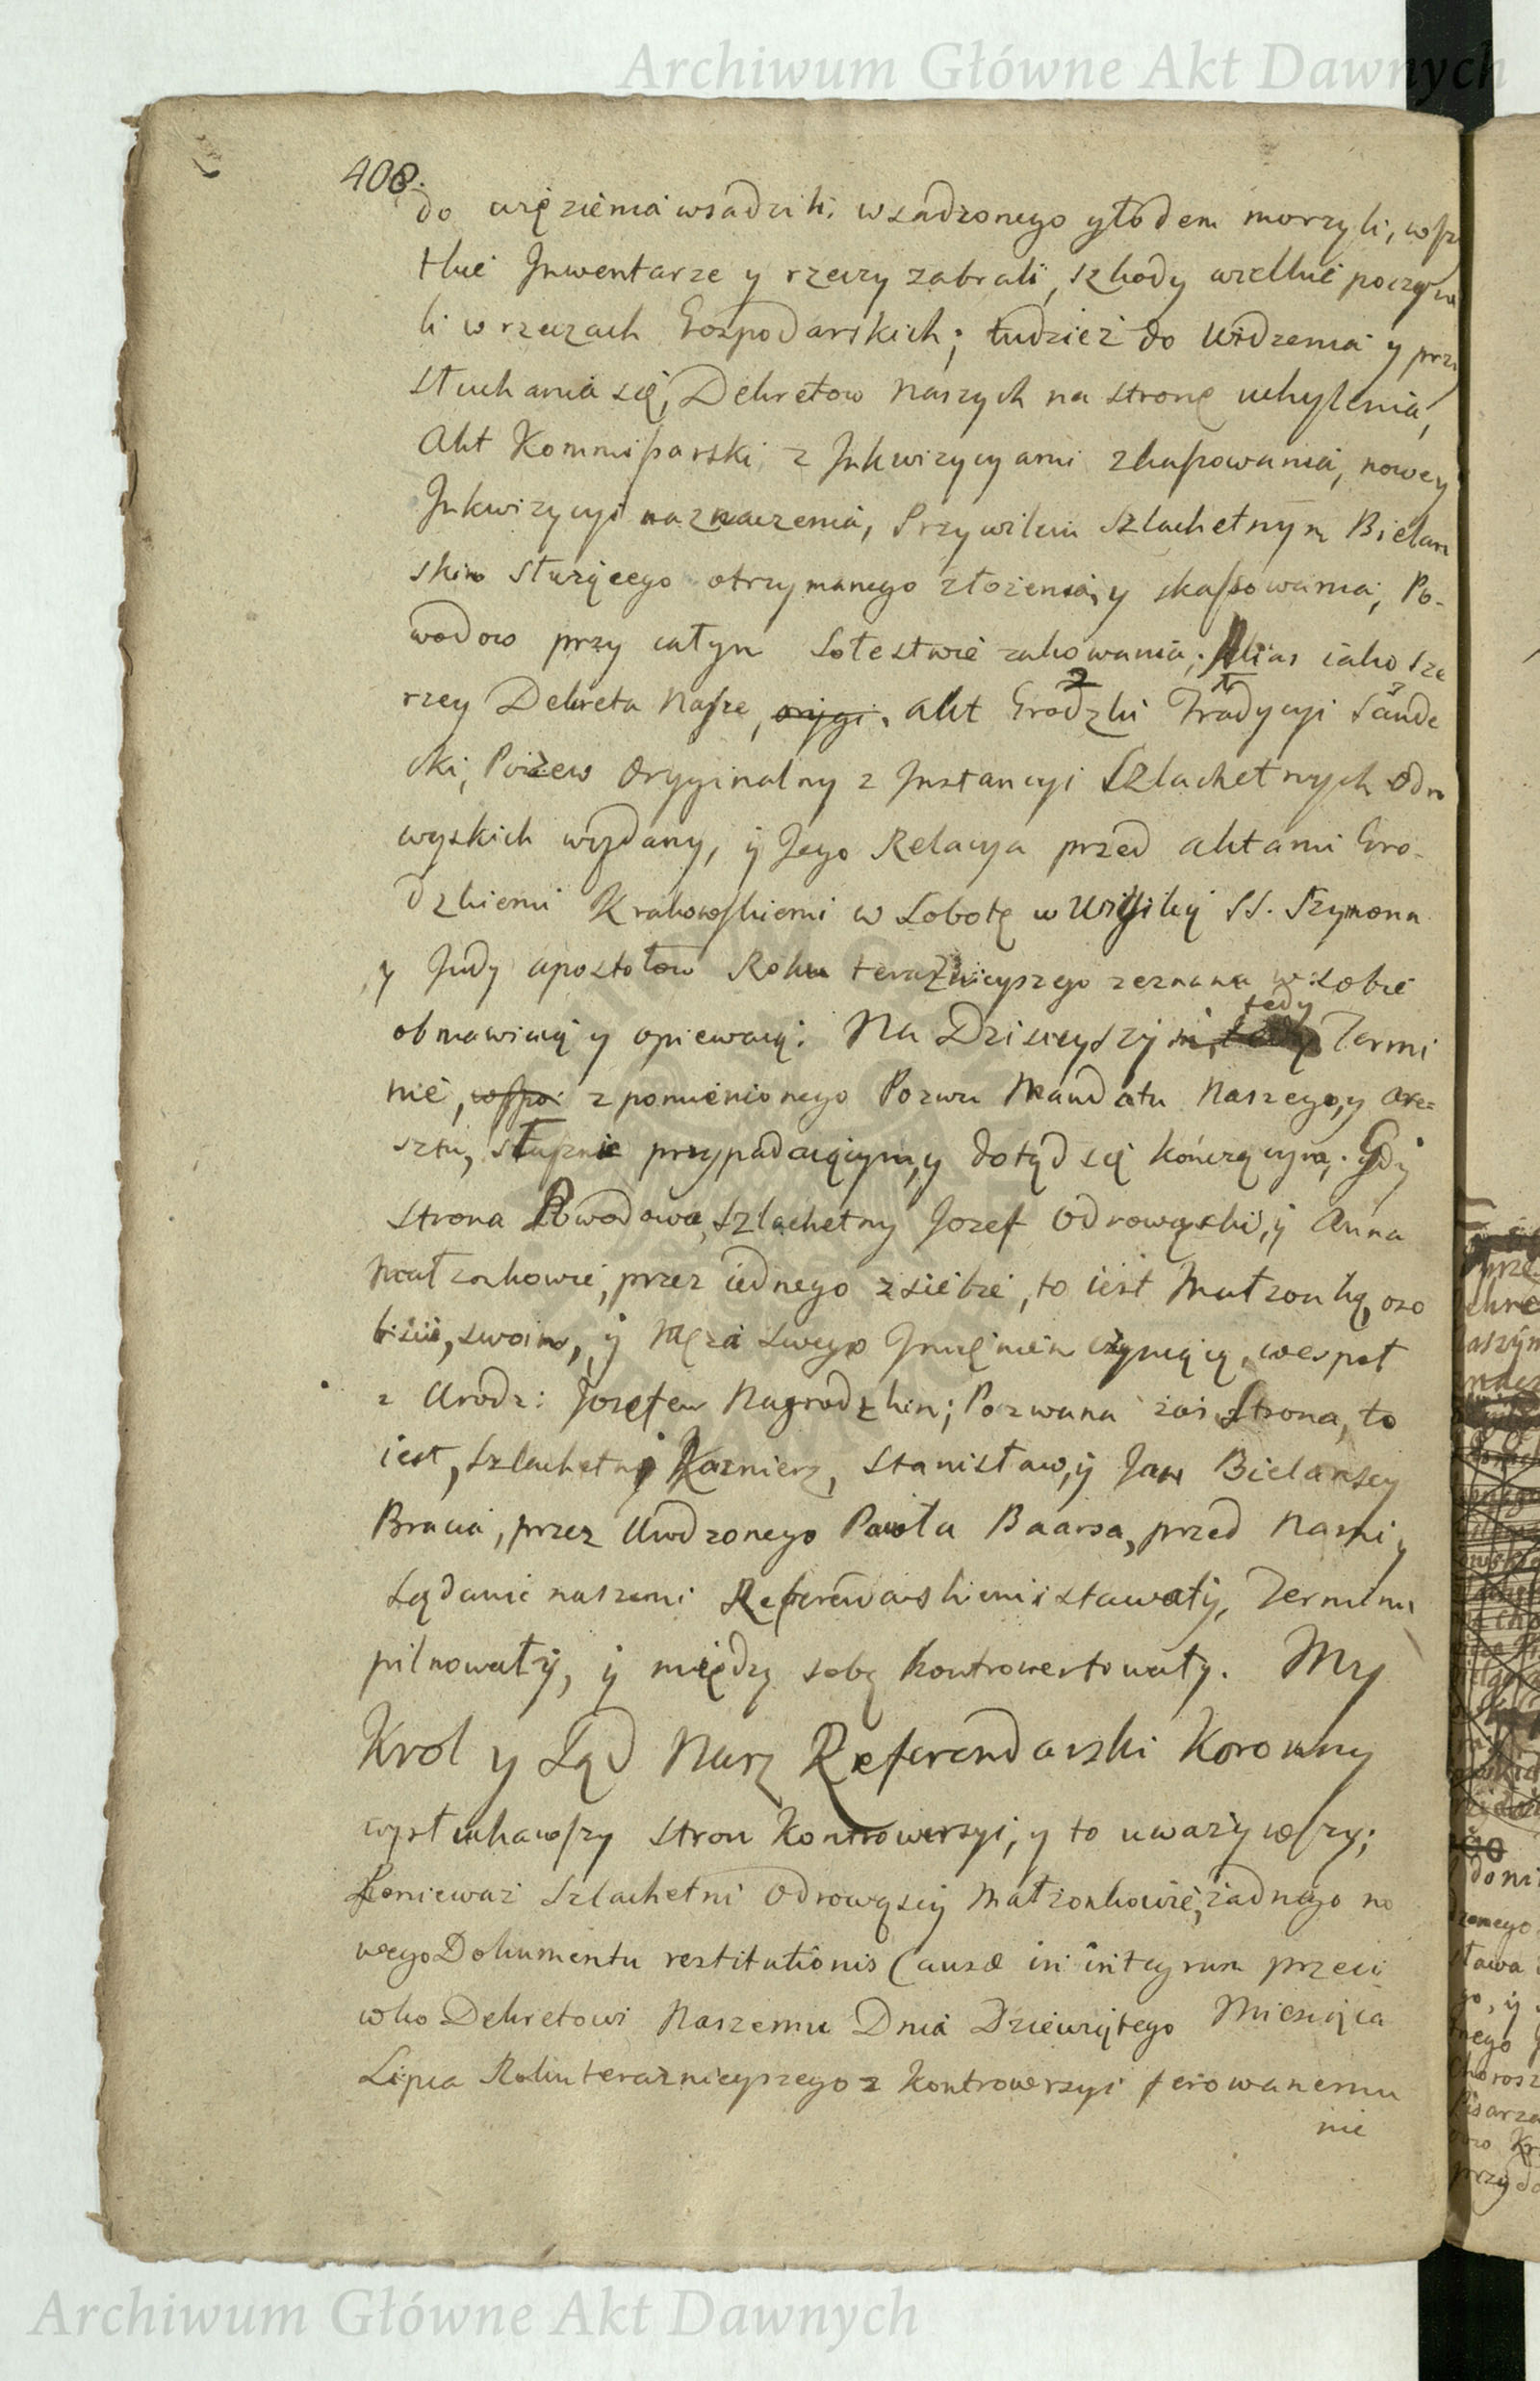 Archiwum Główne Akt Dawnych
408.
do więzienia wsadzili, wsadzonego głodem morzyli, wszy
tkie Inwentarze y rzeczy zabrali, szkody wielkie poczyni
li w rzeczach Gospodarskich; tudzież do widzenia y przy
słuchania się, Dekretow Naszych na stronę uchylenia,
Akt Kommissarski z Inkwizycyami skassowania, nowey
Inkwizycyi naznaczenia, Przywileiu Szlachetnym Bielan
skim służącego otrzymanego złożenia, y skassowania, Po-
wodow przy całym Sołestwie zachowania; Alias iako sze
rzey Dekreta Nasze, orygi. Akt Grodzki Tradycyi Sande
cki, Pozew Oryginalny z Instancyi Szlachetnych Odro
wąskich wydany, y Jego Relacya przed Aktami Gro-
dzkiemi Krakowskiemi w Sobotę w Wigilią SS. Szymona
y Judy Apostołow Roku teraźnieyszego zeznana w sobie
obmawiaią y opiewaią. Na Dzisieyszym tedy Termi
nie, wspo: z pomienionego Pozwu Mandatu Naszego, y Are=
sztu, słusznie przypadaiącym, y dotąd się kończącym. Gdy
strona Powodowa, Szlachetny Jozef Odrowąski, y Anna
Małzonkowie, przez iednego z siebie, to iest Małzonkę, oso
biście, swoim, y Męża swego Imieniem czyniącą, wespoł
z Urodz: Jozefem Nagrodzkim; Pozwana zaś Strona, to
iest, Szlachetny Kazmierz, Stanisław, y Jan Bielanscy
Bracia, przez Urodzonego Pawła Baarsa, przed Nami y
Sądami naszemi Referendarskiemi stawały, Terminu
pilnowały, y między sobą kontrowertowały. My
Krol y Sąd Nasz Referendarski Koronny
wysłuchawszy stron Kontrowersyi, y to uważywszy;
Ponieważ Szlachetni Odrowąscy Małzonkowie, żadnego no
wego Dokumentu restitutionis Causæ in integrum przeci
wko Dekretowi Naszemu Dnia Dziewiątego Miesiąca
Lipca Roku teraznieyszego z Kontrowersyi ferowanemu
nie
Archiwum Główne Akt Dawnych